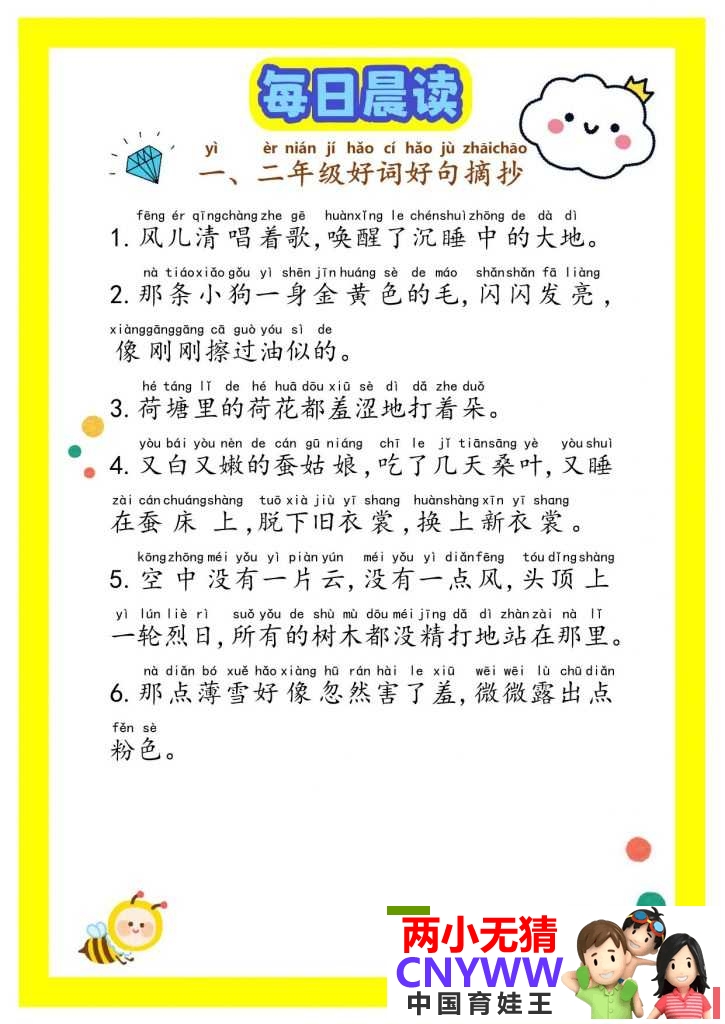 每日晨读
yì èr nián jí hǎo cí hǎo jù zhāichāo
一、二年级好词好句摘抄
fēng ér qīngchàng zhe gē huànxǐng le chénshuìzhōng de dà dì
1.风儿清唱着歌,唤醒了沉睡中的大地。
nà tiáoxiǎogǒu yì shēnjīnhuáng sè de máo shǎnshǎn fā liàng
2.那条小狗一身金黄色的毛,闪闪发亮,
xiànggānggāng cā guò yóu sì de
像刚刚擦过油似的。
hé táng lǐ de hé huā dōu xiū sè dì dǎ zhe duǒ
3.荷塘里的荷花都羞涩地打着朵。
yòu bái yòu nèn de cán gū niáng chī le jǐ tiānsāng yè yòu shuì
4.又白又嫩的蚕姑娘,吃了几天桑叶,又睡
zài cánchuángshàng tuō xià jiù yī shang huànshàng xīn yī shang
在蚕床上,脱下旧衣裳,换上新衣裳。
kōngzhōng méi yǒu yì piàn yún méi yǒu yì diǎnfēng tóu dǐngshàng
5.空中没有一片云,没有一点风,头顶上
yì lún liè rì suǒ yǒu de shù mù dōu méi jīng dǎ dì zhàn zài nà lǐ
一轮烈日,所有的树木都没精打地站在那里。
nà diǎn bó xuě hǎo xiàng hū rán hài le xiū wēi wēi lù chū diǎn
6.那点薄雪好像忽然害了羞,微微露出点
fěn sè
粉色。
两小无猜
CNYWW
中国育娃王